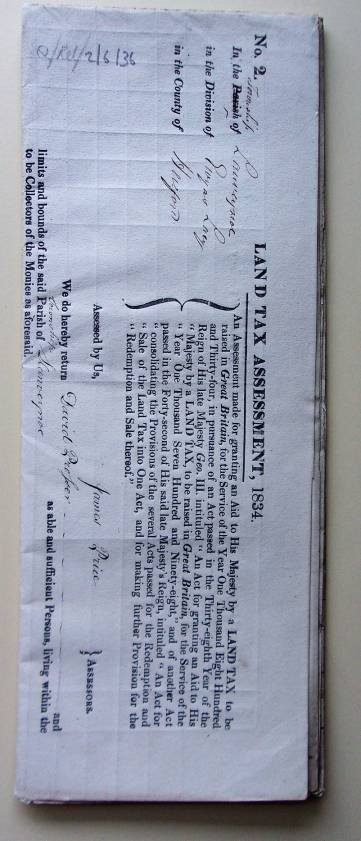 No. 2.
LAND TAX ASSESSMENT, 1834.
Township
In the Parish of Llanveynoe
in the Division of Ewyas Lacy
in the County of Hereford
An Assessment made for granting an Aid to His Majesty by a LAND TAX to be
raised in Great Britain, for the Service of the Year One Thousand Eight Hundred
and Thirty-four, in pursuance of an Act passed in the Thirty-eighth Year of the
Reign of His late Majesty Geo. III. intituled "An Act for granting an Aid to His
"Majesty by a LAND TAX, to be raised in Great Britain, for the Service of the
"Year One Thousand Seven Hundred and Ninety-eight," and of another Act
passed in the Forty-second of His said late Majesty's Reign, intituled "An Act for
"consolidating the Provisions of the several Acts passed for the Redemption and
"Sale of the Land Tax into One Act, and for making further Provision for the
"Redemption and Sale thereof."
Assessed by Us, James Price
ASSESSORS.
We do hereby return David Prosser and
as able and sufficient Persons, living within the
limits and bounds of the said Parish of Township Llanveynoe
to be Collectors of the Monies as aforesaid.
Q/REL/2/6/36